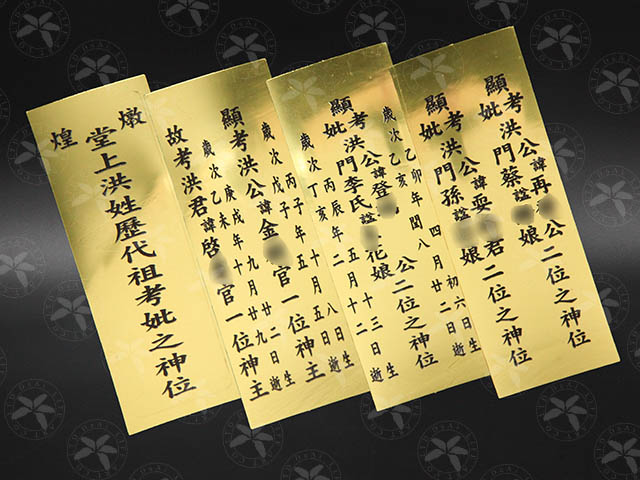 顯考洪公諱再公二位之神位
妣門蔡謚娘
顯考洪公諱耍君二位之神位
妣門孫謚娘
歲次乙卯年閏八初六日生
乙亥四月廿二日逝
顯考洪公諱登公二位之神位
妣門李氏謚花娘
歲次丙辰年五月十三日生
丁亥二月十二日逝
歲次丙子年五八日生
戊子十月五日逝
顯考洪公諱金官一位神主
歲次庚戌年十月廿二日生
乙未九月廿九日逝
故考洪君諱啓官一位神主
燉煌
堂上洪姓歷代祖考妣之神位